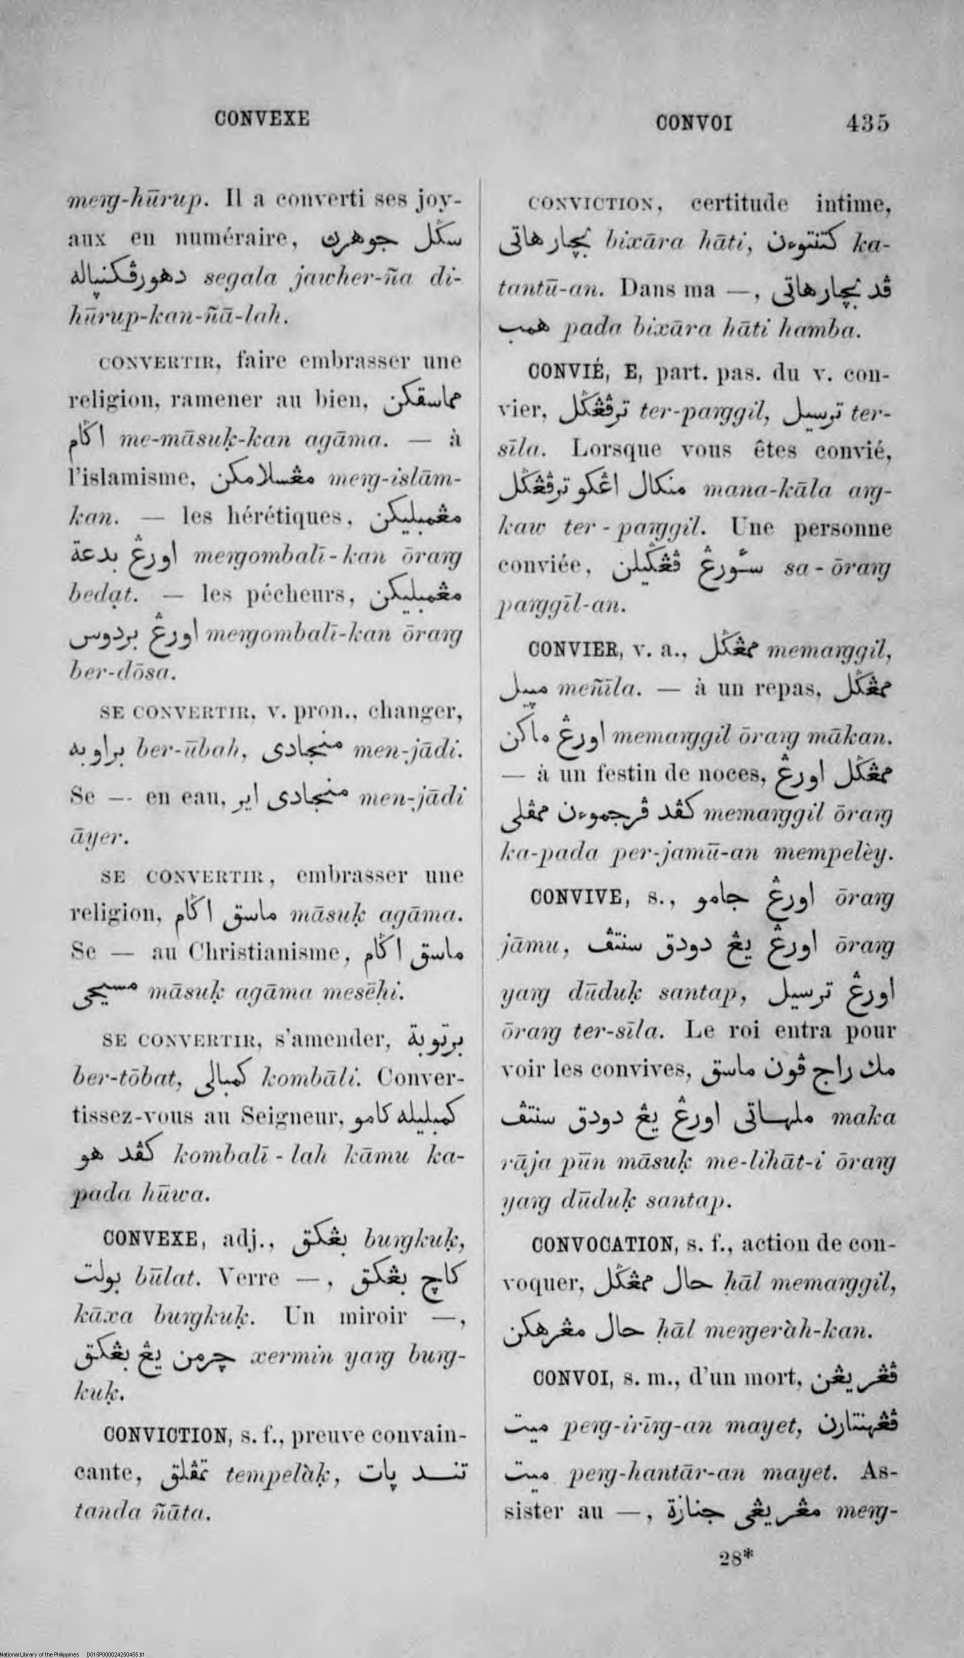 CONVEXE
CONVOI 435
merg-hūrup. Il a converti ses joy-
aux en numéraire, سكل جوهرڽ
دهورڤكنڽاله segala jawher-ña di-
hūrup-kan-ñā-lah.
CONVERTIR, faire embrasser une
religion, ramener au bien, مماسقكن
اݢام me-māsuḳ-kan agāma. — à
l'islamisme, مڠسلامكن merg-islām-
kan. — les hérétiques, مڠمبليكن
اورڠ بدعة mergombalī-kan ōrarg
bedạt. — les pécheurs, مڠمبليكن
اورڠ بردوس mergombalī-kan ōrarg
ber-dōsa.
SE CONVERTIR, v. pron., changer,
براوبه ber-ūbah, منجادي men-jādi.
Se — en eau, منجادي اير men-jādi
āyer.
SE CONVERTIR, embrasser une
religion, ماسق اݢام māsuḳ agāma.
Se — au Christianisme, ماسق اݢام
مسيحي māsuḳ agāma mesēhi.
SE CONVERTIR, s'amender, برتوبة
ber-tōbat, كمبالي kombāli. Conver-
tissez-vous au Seigneur, كمبليله كامو
كڤد هو kombalī-lah kāmu ka-
pada hūwa.
CONVEXE, adj., بڠكق burgkuḳ,
بولت būlat. Verre —, كاچ بڠكق
kāxa burgkuḳ. Un miroir —,
چرمن يڠ بڠكق xermin yarg burg-
kuḳ.
CONVICTION, s. f., preuve convain-
cante, تمڤلق tempelàḳ, تند ڽات
tanda ñāta.
CONVICTION, certitude intime,
بچار هاتي bixāra hāti, كتنتوءن ka-
tantū-an. Dans ma —, ڤد بچار هاتي
همب pada bixāra hāti hamba.
CONVIÉ, E, part. pas. du v. con-
vier, ترڤڠݢل ter-parggil, ترسيل ter-
sīla. Lorsque vous êtes convié,
منكال اڠكو ترڤڠݢل mana-kāla arg-
kaw ter-parggil. Une personne
conviée, سئورڠ ڤڠݢيلن sa-ōrarg
parggīl-an.
CONVIER, v. a., ممڠݢل memarggil,
مڽيل meñīla. — à un repas, ممڠݢل
اورڠ ماكن memarggil ōrarg mākan.
— à un festin de noces, ممڠݢل اورڠ
كڤد ڤرجموءن ممڤلي memarggil ōrarg
ka-pada per-jamū-an mempelèy.
CONVIVE, s., اورڠ جامو ōrarg
jāmu, اورڠ يڠ دودق سنتڤ ōrarg
yarg dūduḳ santap, اورڠ ترسيل
ōrarg ter-sīla. Le roi entra pour
voir les convives, مك راج ڤون ماسق
ملهاتي اورڠ يڠ دودق سنتڤ maka
rāja pūn māsuḳ me-lihāt-i ōrarg
yarg dūduḳ santap.
CONVOCATION, s. f., action de con-
voquer, حال ممڠݢل ḥāl memarggil,
حال مڠرهكن ḥāl mergeràh-kan.
CONVOI, s. m., d'un mort, ڤڠريڠن
ميت perg-irīrg-an mayet, ڤڠهنتارن
ميت perg-hantār-an mayet. As-
sister au —, مڠريڠي جنازة merg-
28*
National Library of the Philippines